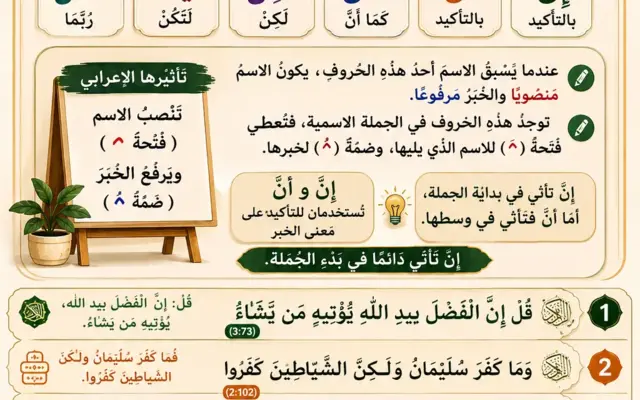 بالتأكيد
بالتأكيد
كَمَا أَنَّ
لَكِنْ
لَتَكُنْ
رُبَّمَا
عندما يَسْبقُ الاسمَ أحدُ هذْهِ الحُروفِ، يكونُ الاسمُ
مَنصُوبًا والخُبَرُ مَرفُوعًا.
توجدُ هذْهِ الخروف في الجملة الاسمية، فتُعطي
فَتْحَةُ (َ) للاسم الذْي يليها، وضمَةٌ (ُ) لخبرها.
تَأثيْرها الإعرابي
تَنْصبُ الاسم
( فَتْحةَ َ )
ويَرفْعُ الخُبَرَ
( ضَمّةُ ُ )
إنَّ تأثي في بدايْة الجملة،
أمَا أنَّ فتَأثي في وسطها.
إِنَّ و أنَّ
تُستخدمان للتأكيد على
مَعنى الخبر
إنَّ تَأتَي دَائمًا في بَدْءِ الجُمَلة.
1
قُلْ إِنَّ الْفَضْلَ بِيدِ اللَّهِ يُؤْتِيهِ مَن يَّشَاءُ
(3:73)
قُلْ: إنَّ الْفَضْلَ بيد الله،
يُؤْتِيهِ مَن يَشَاءُ.
2
وَمَا كَفَرَ سُلَيْمَانُ وَلَـكِنَّ الشَّيَاطِيْنَ كَفَرُوا
(2:102)
فُمَا كَفَرَ سُلَيْمَانُ ولـٰكنَ
الشَّياطِينَ كَفَرُوا.